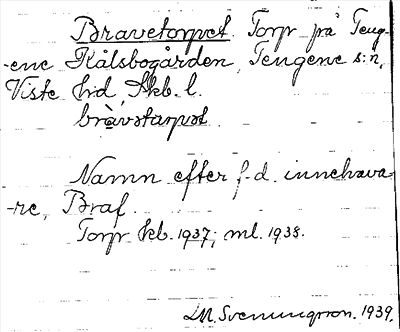 Bravetorpet. Torp på Teng-
-ene Kålsbogården, Tengene s:n,
Viste hd, Skb. l.
bràvətarpət.
Namn efter f.d. innehava-
-re, Braf.
Torp kb. 1937; ml. 1938.
LM. Svenungsson. 1939.